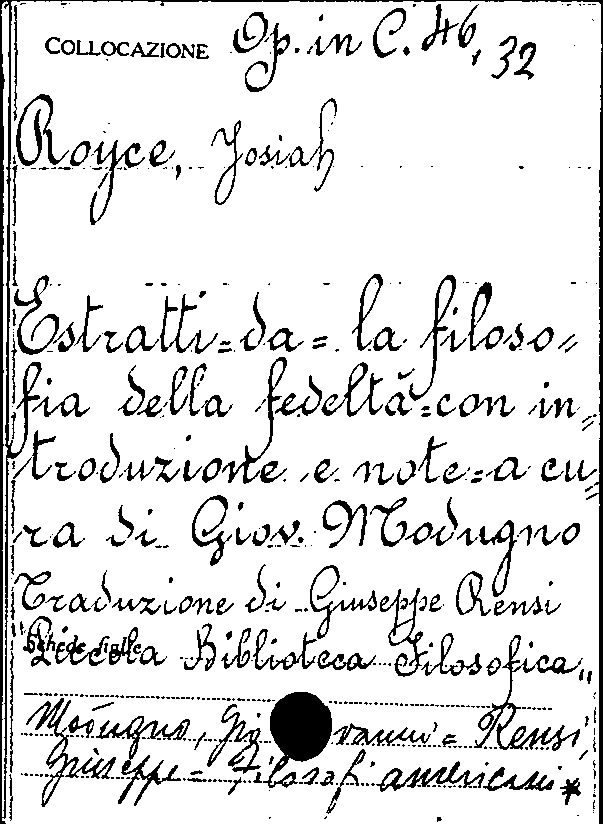 COLLOCAZIONE Op. in C. 46, 32
Royce, Josiah
Estratti=da= la filoso=
fia della fedeltà=con in=
troduzione e note=a cu=
ra di Giov. Modugno
Traduzione di Giuseppe Rensi
"Piccola Biblioteca Filosofica"
Schede figlie
Modugno, Giovanni = Rensi,
Giuseppe = Filosofi americani *